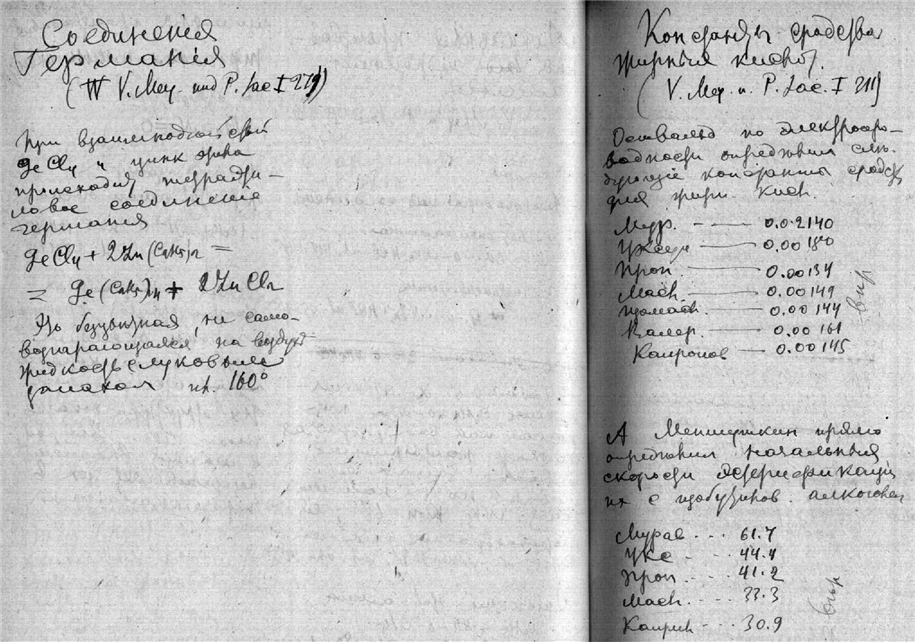 Соединенія
Германія
(V. Mey. und P. Jac. I 279)
При взаимнодѣйствіи
GeCl4 и цинк этила
происходит тетраэти-
ловое соединеніе
германія
GeCl4 + 2Zn(C2H5)2 =
= Ge(C2H5)4 + 2ZnCl2
Это безцвѣтная, не само-
возгарающаяся на воздухѣ
жидкость с луковым
запахом 160°
Константы сродства
жирных кислот
(V. Mey. u. P. Jac. I 211)
Оствальд по электропро-
водности опредѣлил слѣ-
дующіе константы сродст
для жирн. кисл.
Мур. — 0.02140
Уксус — 0.00180
Проп — 0.00134
Масл. — 0.00149
Изомасл. — 0.00144
Валер. — 0.00161
Капронов — 0.00145
А Меншуткин прямо
опредѣлил начальныя
скорости этерификаціи
их с изобутилов. алкоголем
Мурав. - - - 61.7
Укс - - - 44.4
Проп - - - 41.2
Масл. - - - 33.3
Каприл - - - 30.9